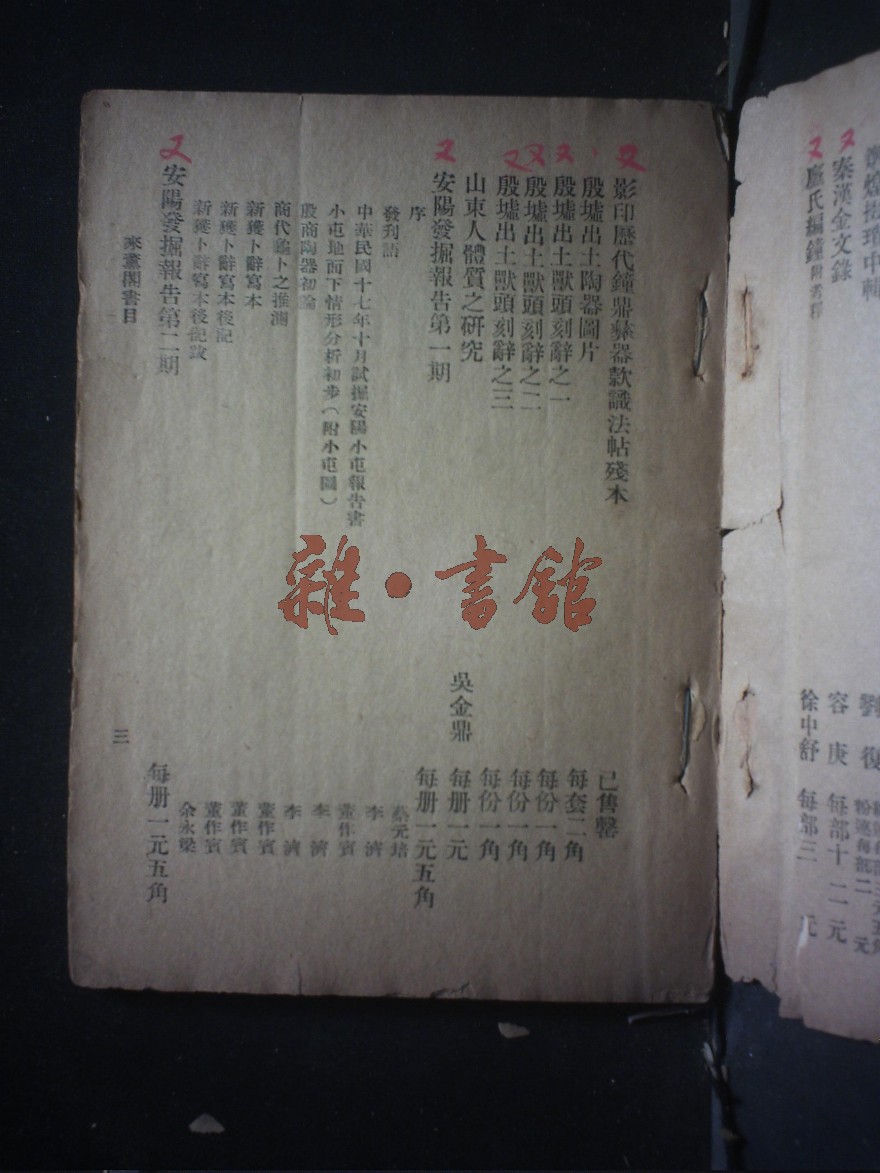 秦漢金文錄 容庚 每部十二元
廌氏編鐘附考釋 徐中舒 每部三元
影印歷代鐘鼎彝器款識法帖殘本 已售罄
殷墟出土陶器圖片 每套二角
殷墟出土獸頭刻辭之一 每份一角
殷墟出土獸頭刻辭之二 每份一角
殷墟出土獸頭刻辭之三 每份一角
山東人體質之研究 吳金鼎 每册一元
安陽發掘報告第一期 每册一元五角
序 蔡元培
發刊語 李濟
中華民國十七年十月試掘安陽小屯報告書 董作賓
小屯地面下情形分析初步(附小屯圖) 李濟
殷商陶器初論 李濟
商代龜卜之推測 董作賓
新獲卜辭寫本 董作賓
新獲卜辭寫本後記 董作賓
新獲卜辭寫本後記跋 余永梁
安陽發掘報告第二期 每册一元五角
來薰閣書目 三
雜·書館